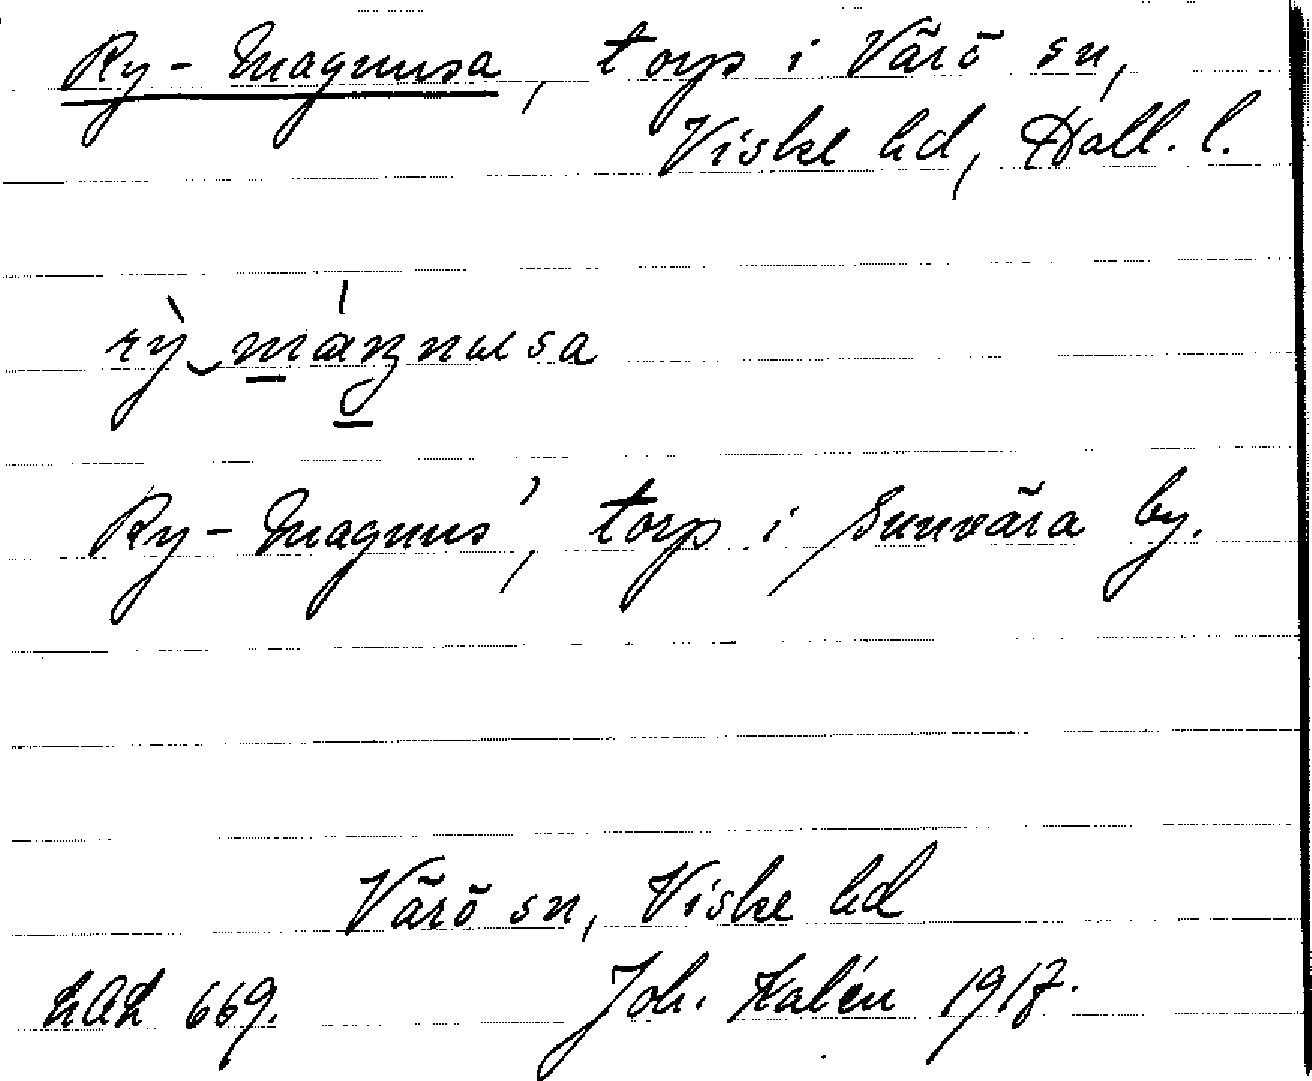 Ry-Magnusa, torp i Värö sn,
Viske hd, Hall. l.
rỳ‿máŋnusa
Ry-Magnus', torp i Sunvära by.
Värö sn, Viske hd
LAL 669. Joh. Kalén 1917.